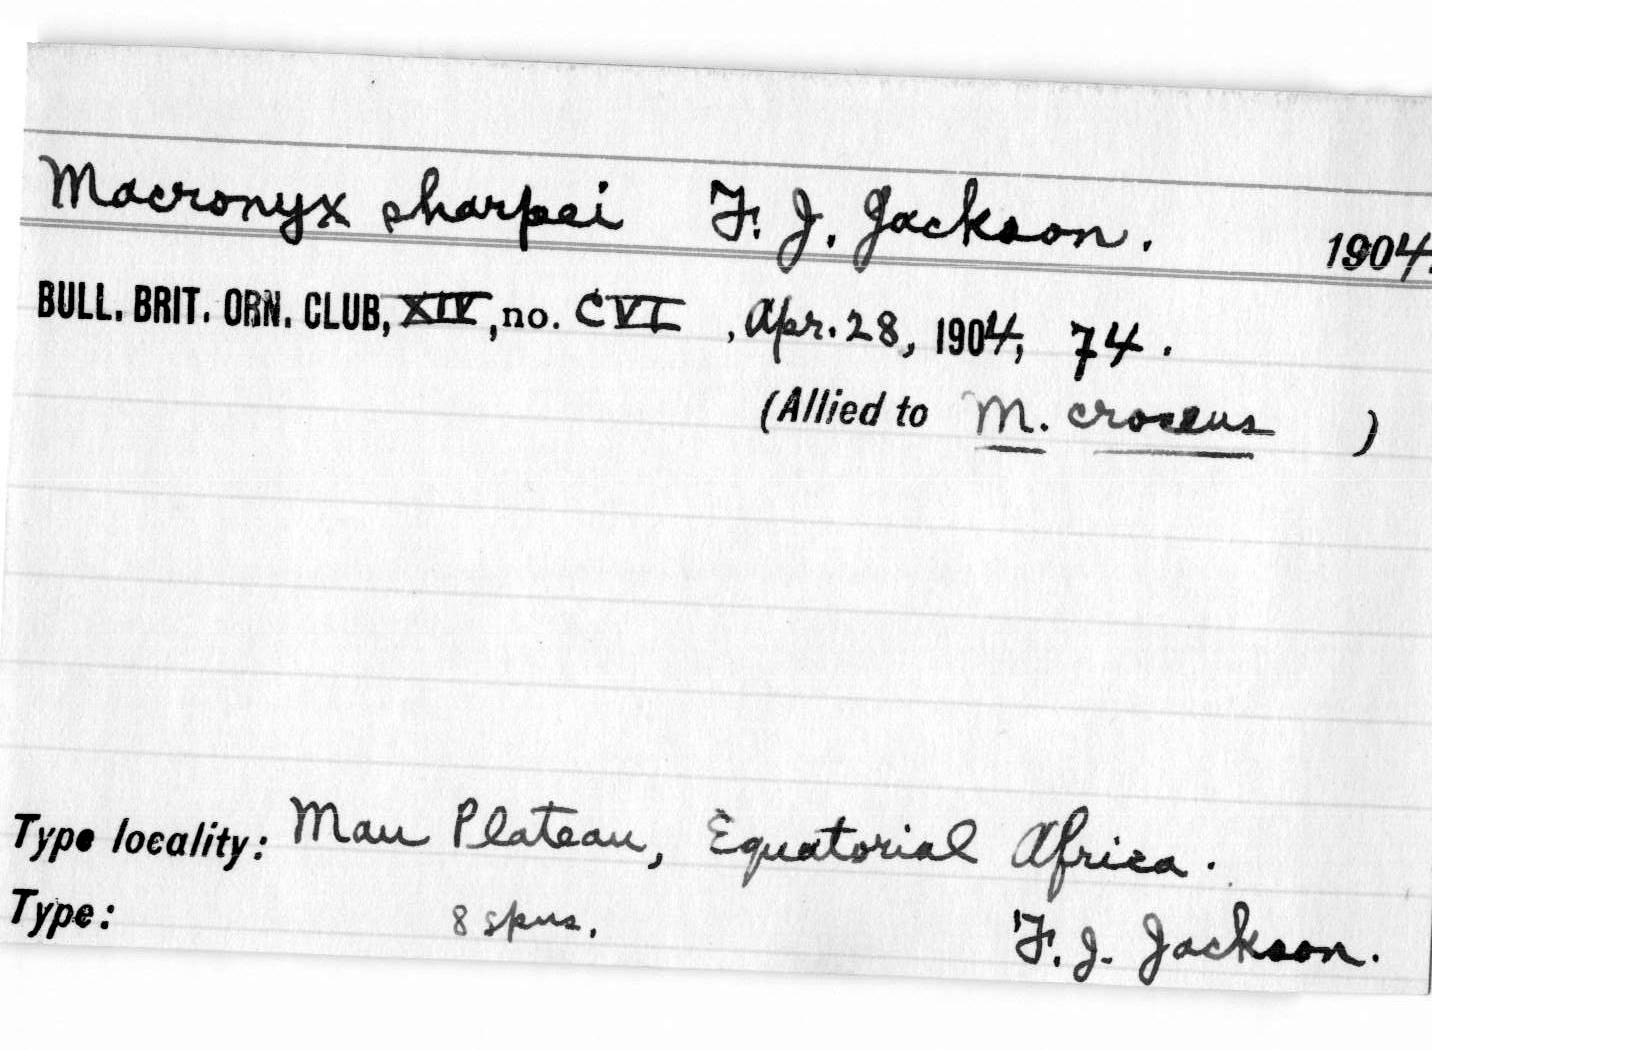 Macronyx sharpei F. J. Jackson. 1904.
BULL. BRIT. ORN. CLUB, XIV, no. CVI, Apr. 28, 1904, 74.
(Allied to M. croceus )
Type locality: Mau Plateau, Equatorial Africa.
Type: 8 spns. F. J. Jackson.